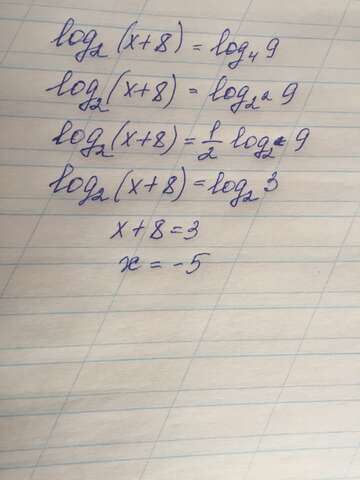 log₂(x+8) = log₄ 9
log₂(x+8) = log₂² 9
log₂(x+8) = 1/2 log₂ 9
log₂(x+8) = log₂ 3
x+8=3
x = -5